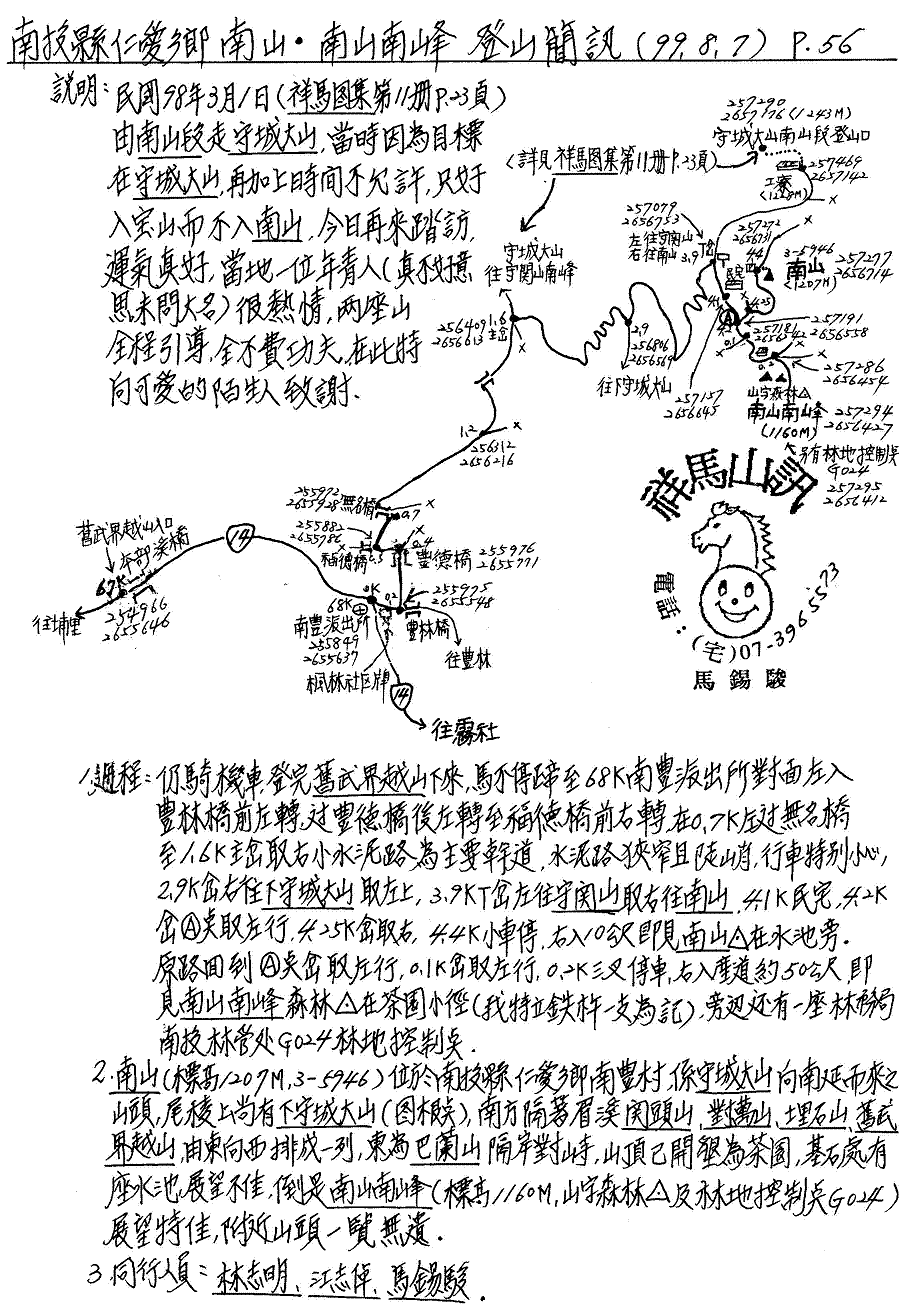 南投縣仁愛鄉 南山·南山南峰 登山簡訊(99.8.7) P.56
說明：民國98年3月1日(祥馬图集第11册P.23頁)
由南山段走守城大山,當時因為目標
在守城大山,再加上時間不允許,只好
入宝山而不入南山,今日再來踏訪,
運氣真好,當地一位年青人(真不好意
思未問大名)很熱情,两座山
全程引導,全不費功夫,在此特
向可愛的陌生人致謝.
257290
2657176(1243M)
守城大山南山段登山口
(詳見祥馬图集第11册P.23頁)
257469
2657142
工寮
(1228M)
257079
2656753
左往守関山
右往南山
3.9
257272
2656731
4.4
3-5946
南山
(1207M)
257277
2656714
守城大山
往守関山南峰
256409
2656613
1.6
主岔
2.9
256806
2656569
往下守城大山
4.1
民宅
4.2
Ⓐ
4.25
257191
2656558
257181
2656542
0.1
257286
2656454
257157
2656645
山字森林△
南山南峰
(1160M)
257294
2656427
另有林地控制点
G024
257295
2656412
1.2
256312
2656216
255972
2655928
無名橋
0.7
255882
2655786
福德橋
0.4
豐德橋
255976
2655771
舊武界越山入口
本部溪橋
67K
往埔里
254966
2655646
14
68K
0K
0.2
255975
2655548
豐林橋
往豐林
南豐派出所
255849
2655637
楓林社区牌
14
往霧社
祥馬山訊
電話：(宅)07-3965573
馬錫駿
1.過程：仍騎機車,登完舊武界越山下來,馬不停蹄至68K南豐派出所對面左入
豐林橋前左轉,过豐德橋後左轉至福德橋前右轉,在0.7K左过無名橋
至1.6K主岔取右小水泥路為主要幹道,水泥路狹窄且陡峭,行車特別小心,
2.9K岔右往下守城大山取左上,3.9KT岔左往守関山取右往南山,4.1K民宅,4.2K
岔Ⓐ点取左行,4.25K岔取右,4.4K小車停,右入10公尺即見南山△在水池旁.
原路回到Ⓐ点岔取左行,0.1K岔取左行,0.2K三叉停車,右入產道約50公尺,即
見南山南峰森林△在茶園小徑(我特立鉄杵一支為記),旁边还有一座林務局
南投林管处G024林地控制点.
2.南山(標高1207M,3-5946)位於南投縣仁愛鄉南豐村,係守城大山向南延而來之
山頭,尾稜上尚有下守城大山(图根点),南方隔著眉溪関頭山、對萬山、埋石山、舊武
界越山,由東向西排成一列,東為巴蘭山隔岸對峙,山頂已開墾為茶園,基石處有
座水池,展望不佳,倒是南山南峰(標高1160M,山字森林△及林地控制点G024)
展望特佳,附近山頭一覽無遺.
3.同行人員：林志明、江志倬、馬錫駿.